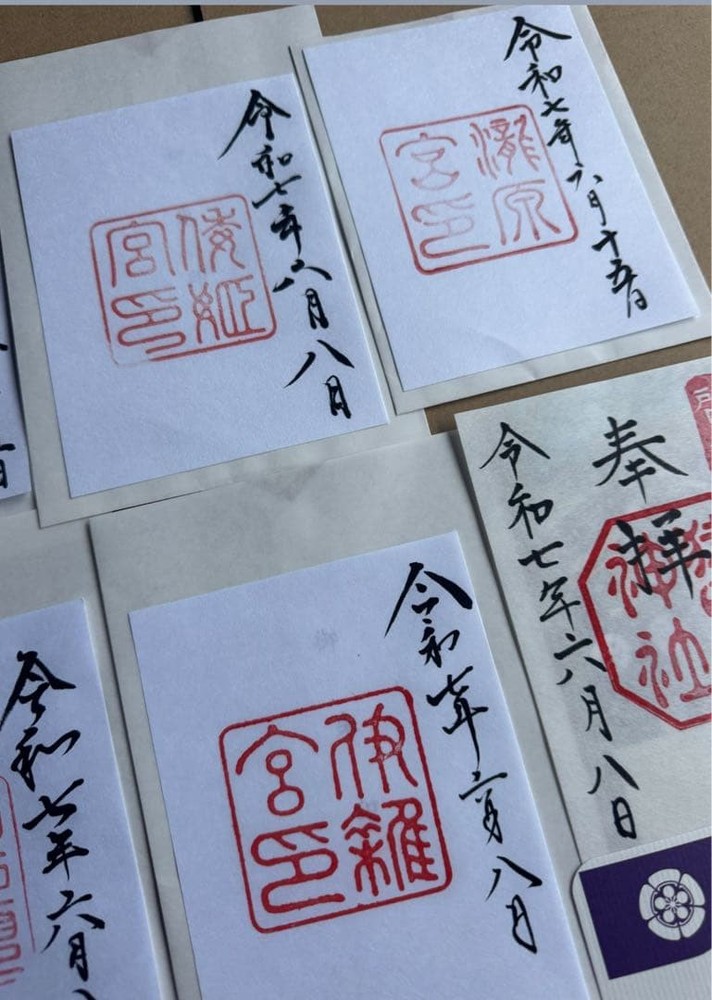 令和七年六月八日
倭姫
宮印
令和七年六月十五日
瀧原
宮印
奉拝
神社
令和七年六月八日
令和七年六月八日
伊雜
宮印
令和七年六月